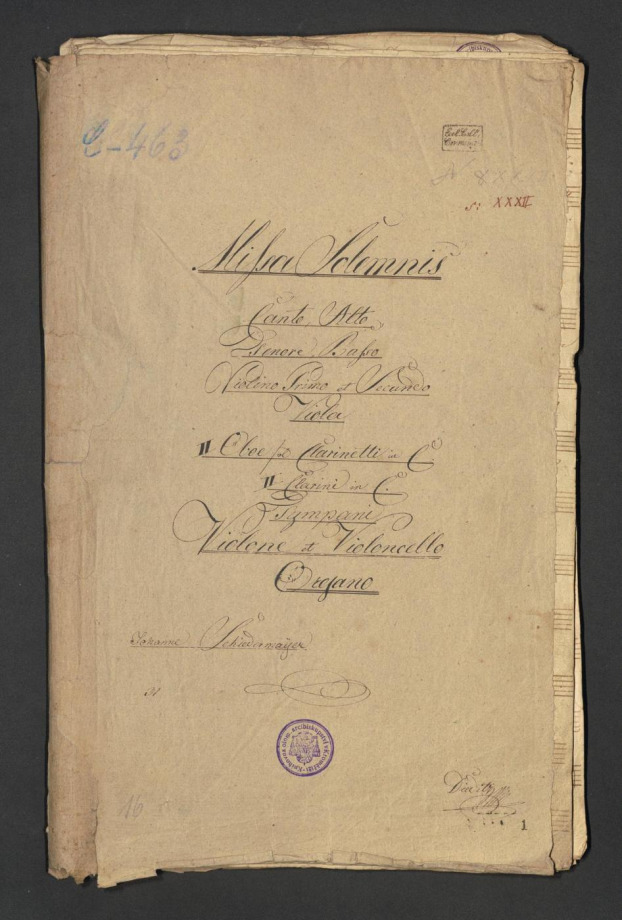 C–463
N XXX
N: XXXII
Missa Solemnis
Canto, Alto,
Tenore, Basso
Violino Primo et Secundo
Viola
II Oboe Clarinetti in C
II Clarini in C.
Tympani
Violone et Violoncello
Organo
Schiedermayer
16
1